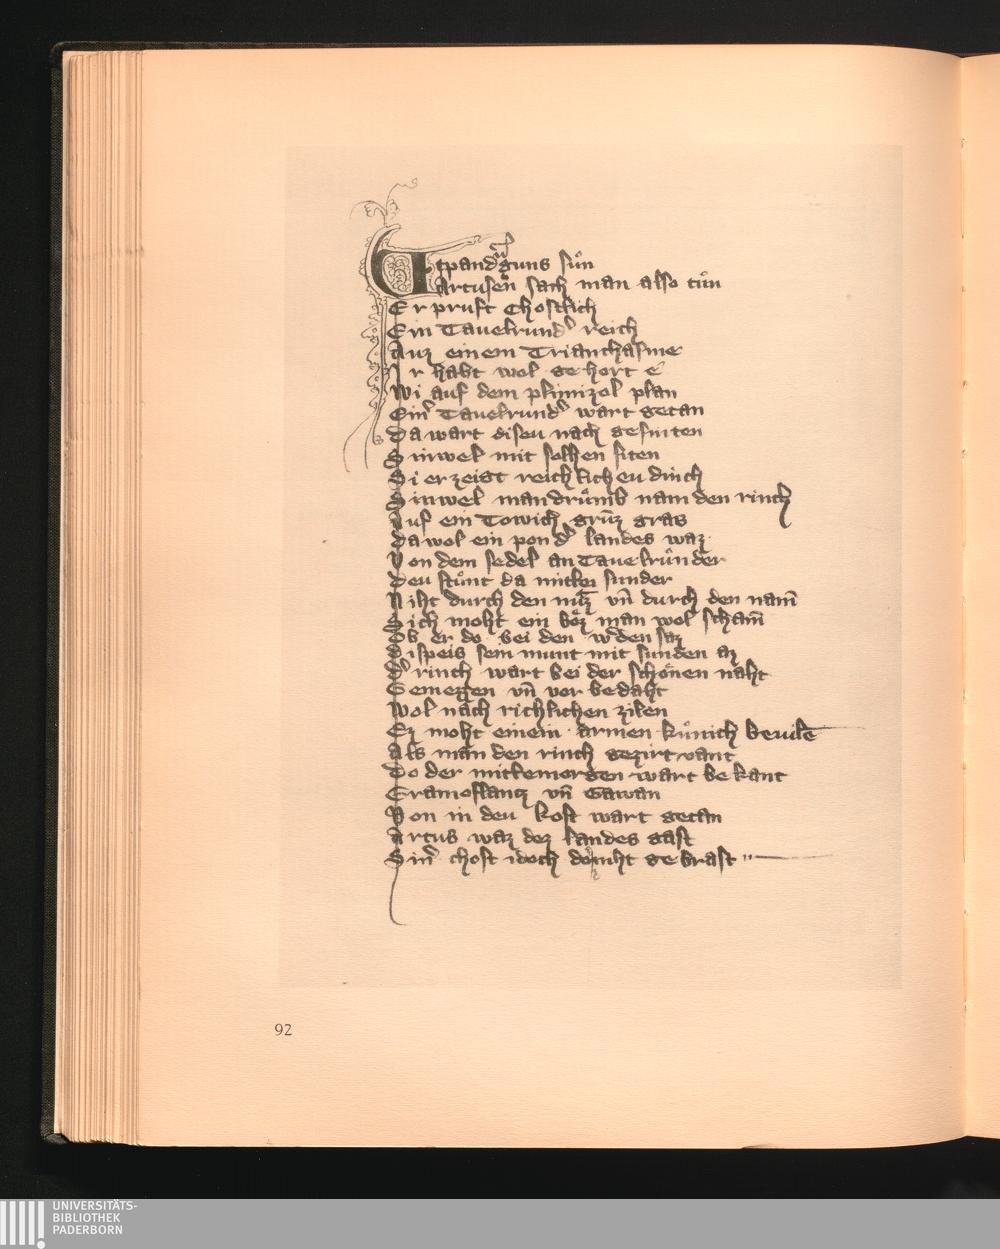 Utpandᵉguns suͦn
Artusen sach man also tuͦn
Er pruft chostlich
Ein Tauelrundᵉ reich
Auz einem Trianthasme
Ir habt wol gehort e
Wi auf dem plimizol plan
Einᵉ Tauelrundᵉ wart getan
Da wart diseu nach gesniten
Sinwel mit solhen siten
Si erzeigt reichlicheu dinch
Sinwel man drůmb nam den rinch
Auf ein Towich grůz gras
Da wol ein pondᵉ landes waz
Von dem sedel an Tauelrůnder
Deu stůnt da mitten sunder
Niht durch den nutz vn̄ durch den nam̄
Sich moht ein boͤz man wol scham̄
Ob er do bei den wᵉden saz
Di speis sein munt mit sunden az
Dᵉ rinch wart bei der schoͤnen naht
Gemezzen vn̄ vor bedaht
Wol nach richlichen zilen
Ez moht einem armen kůnich beuilē
Als man den rinch gezirt vant
Do der mittemorgen wart bekant
Gramoflantz vn̄ Gawan
Von in deu kost wart getan
Artus waz dez landes gast
Sinᵉ chost idoch do niht gebrast
92
UNIVERSITÄTS-
BIBLIOTHEK
PADERBORN